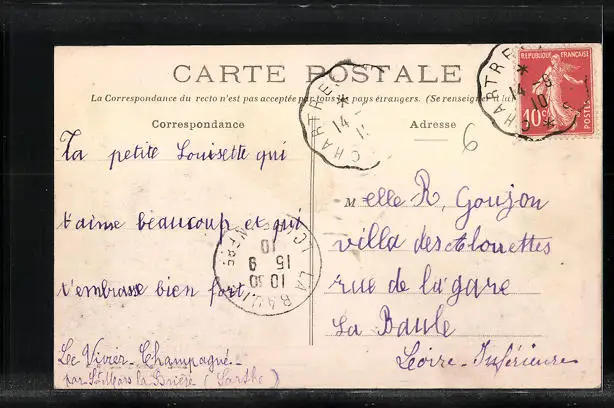 CARTE POSTALE
La Correspondance du recto n'est pas acceptée par tous les pays étrangers. (Se renseigner à la
Correspondance
Adresse
6
CHARTRES
14 - 8
10
REPUBLIQUE FRANÇAISE
10c
POSTES
CHARTRE
14
Ta petite Louisette qui
t'aime beaucoup et qui
t'embrasse bien fort
Le Vivier-Champagné
par St Mars la Brière (Sarthe)
Melle R. Goujon
villa des Alouettes
rue de la gare
La Baule
Loire-Inférieure
LA BAULE
10 30
15 9
10